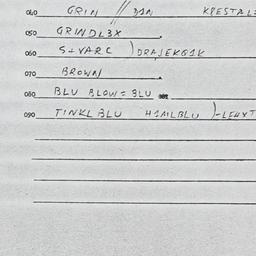 040 GRIN // DAN KRESTAL
050 GRINDL3X
060 S+VARC )DRAJEKG1K
070 BROWN
080 BLU BLOW = BLU
090 TINKL BLU H1MLBLU )-LEHXT